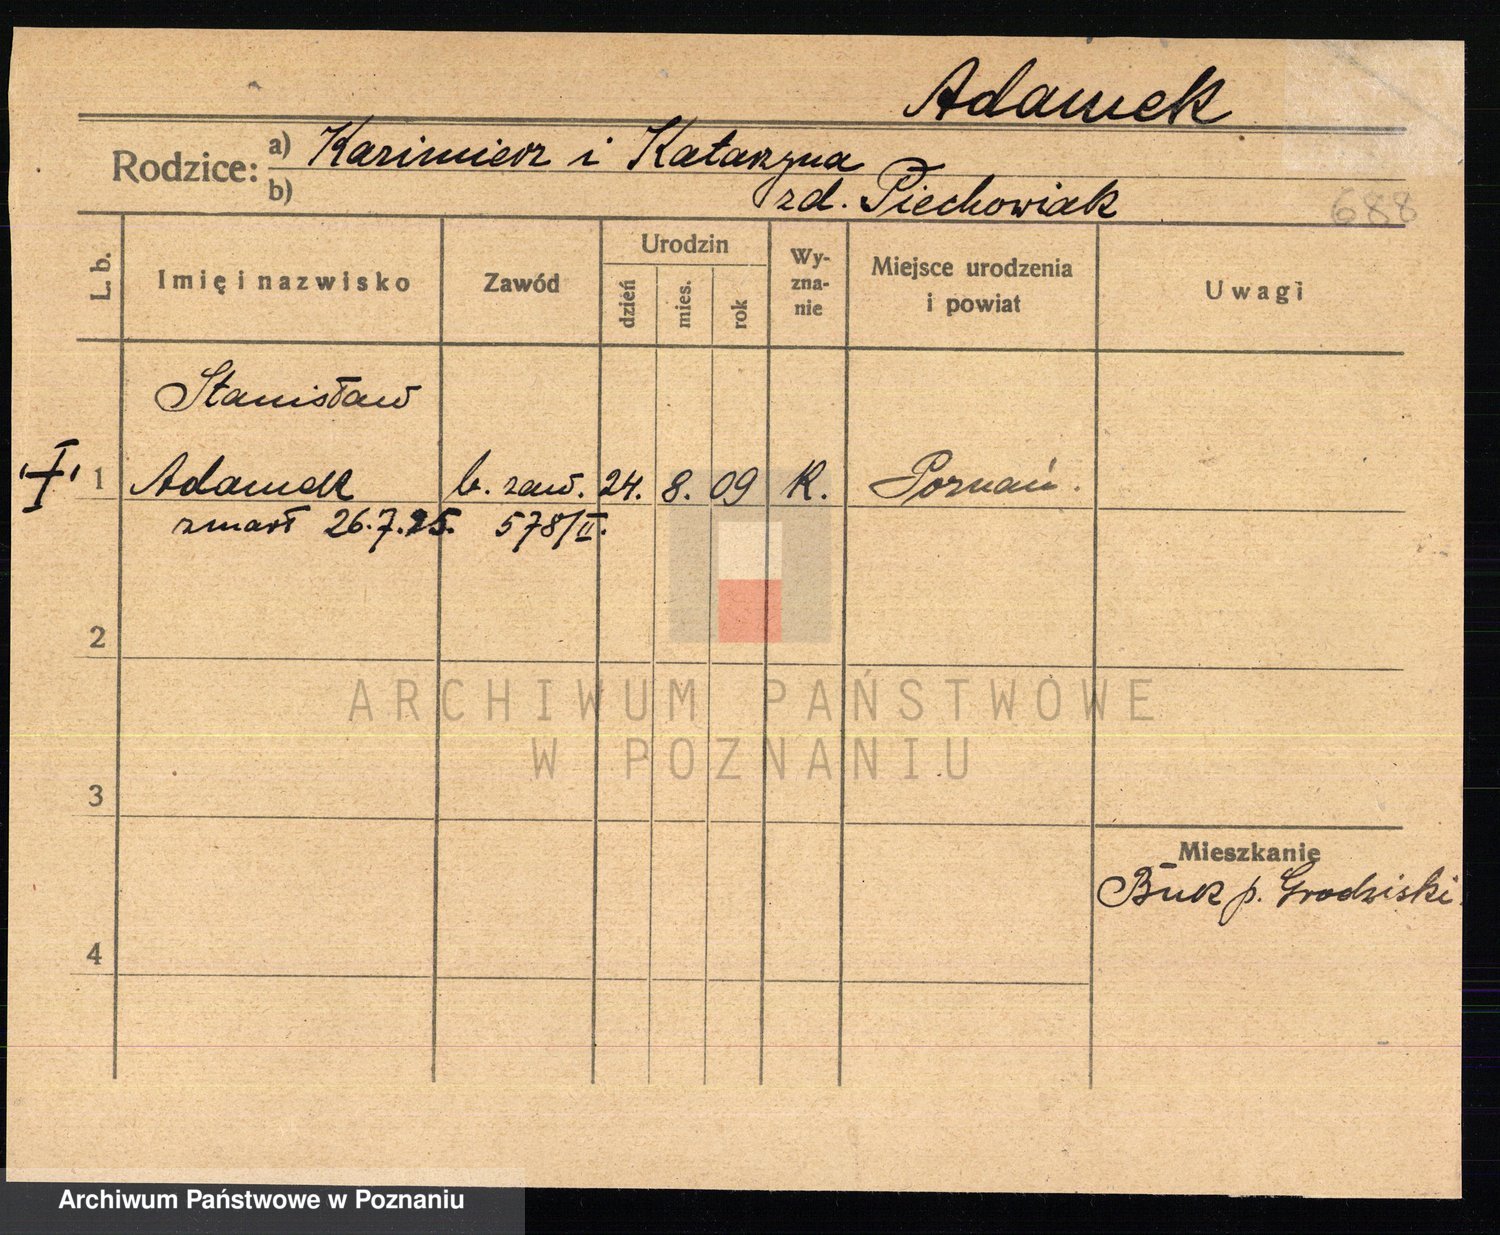 Adamek
Rodzice: a) Kazimierz i Katarzyna
b) zd. Piechowiak
688
L. b.
Imię i nazwisko
Zawód
Urodzin
dzień
mies.
rok
Wy-
zna-
nie
Miejsce urodzenia
i powiat
Uwagi
Stanisław
1 Adamek b. zaw. 24. 8. 09 K. Poznań.
zmarł 26.7.25. 578/II.
2
ARCHIWUM PAŃSTWOWE
W POZNANIU
3
Mieszkanie
Buk p. Grodziski.
4
Archiwum Państwowe w Poznaniu